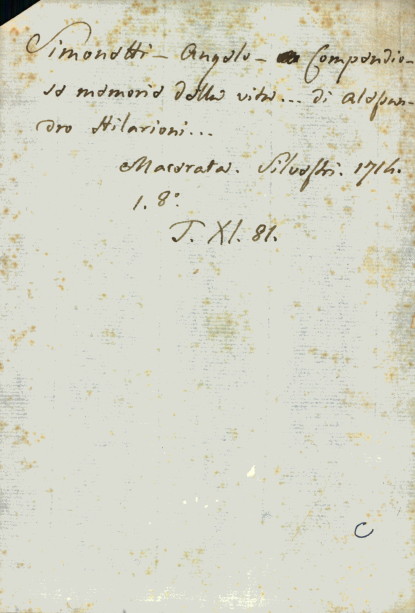 Simonetti - Angelo - Compendio-
sa memoria della vita... di Alessan-
dro Hilarioni...
Macerata. Silvestri. 1714.
1. 8°.
T. XI. 81.
C